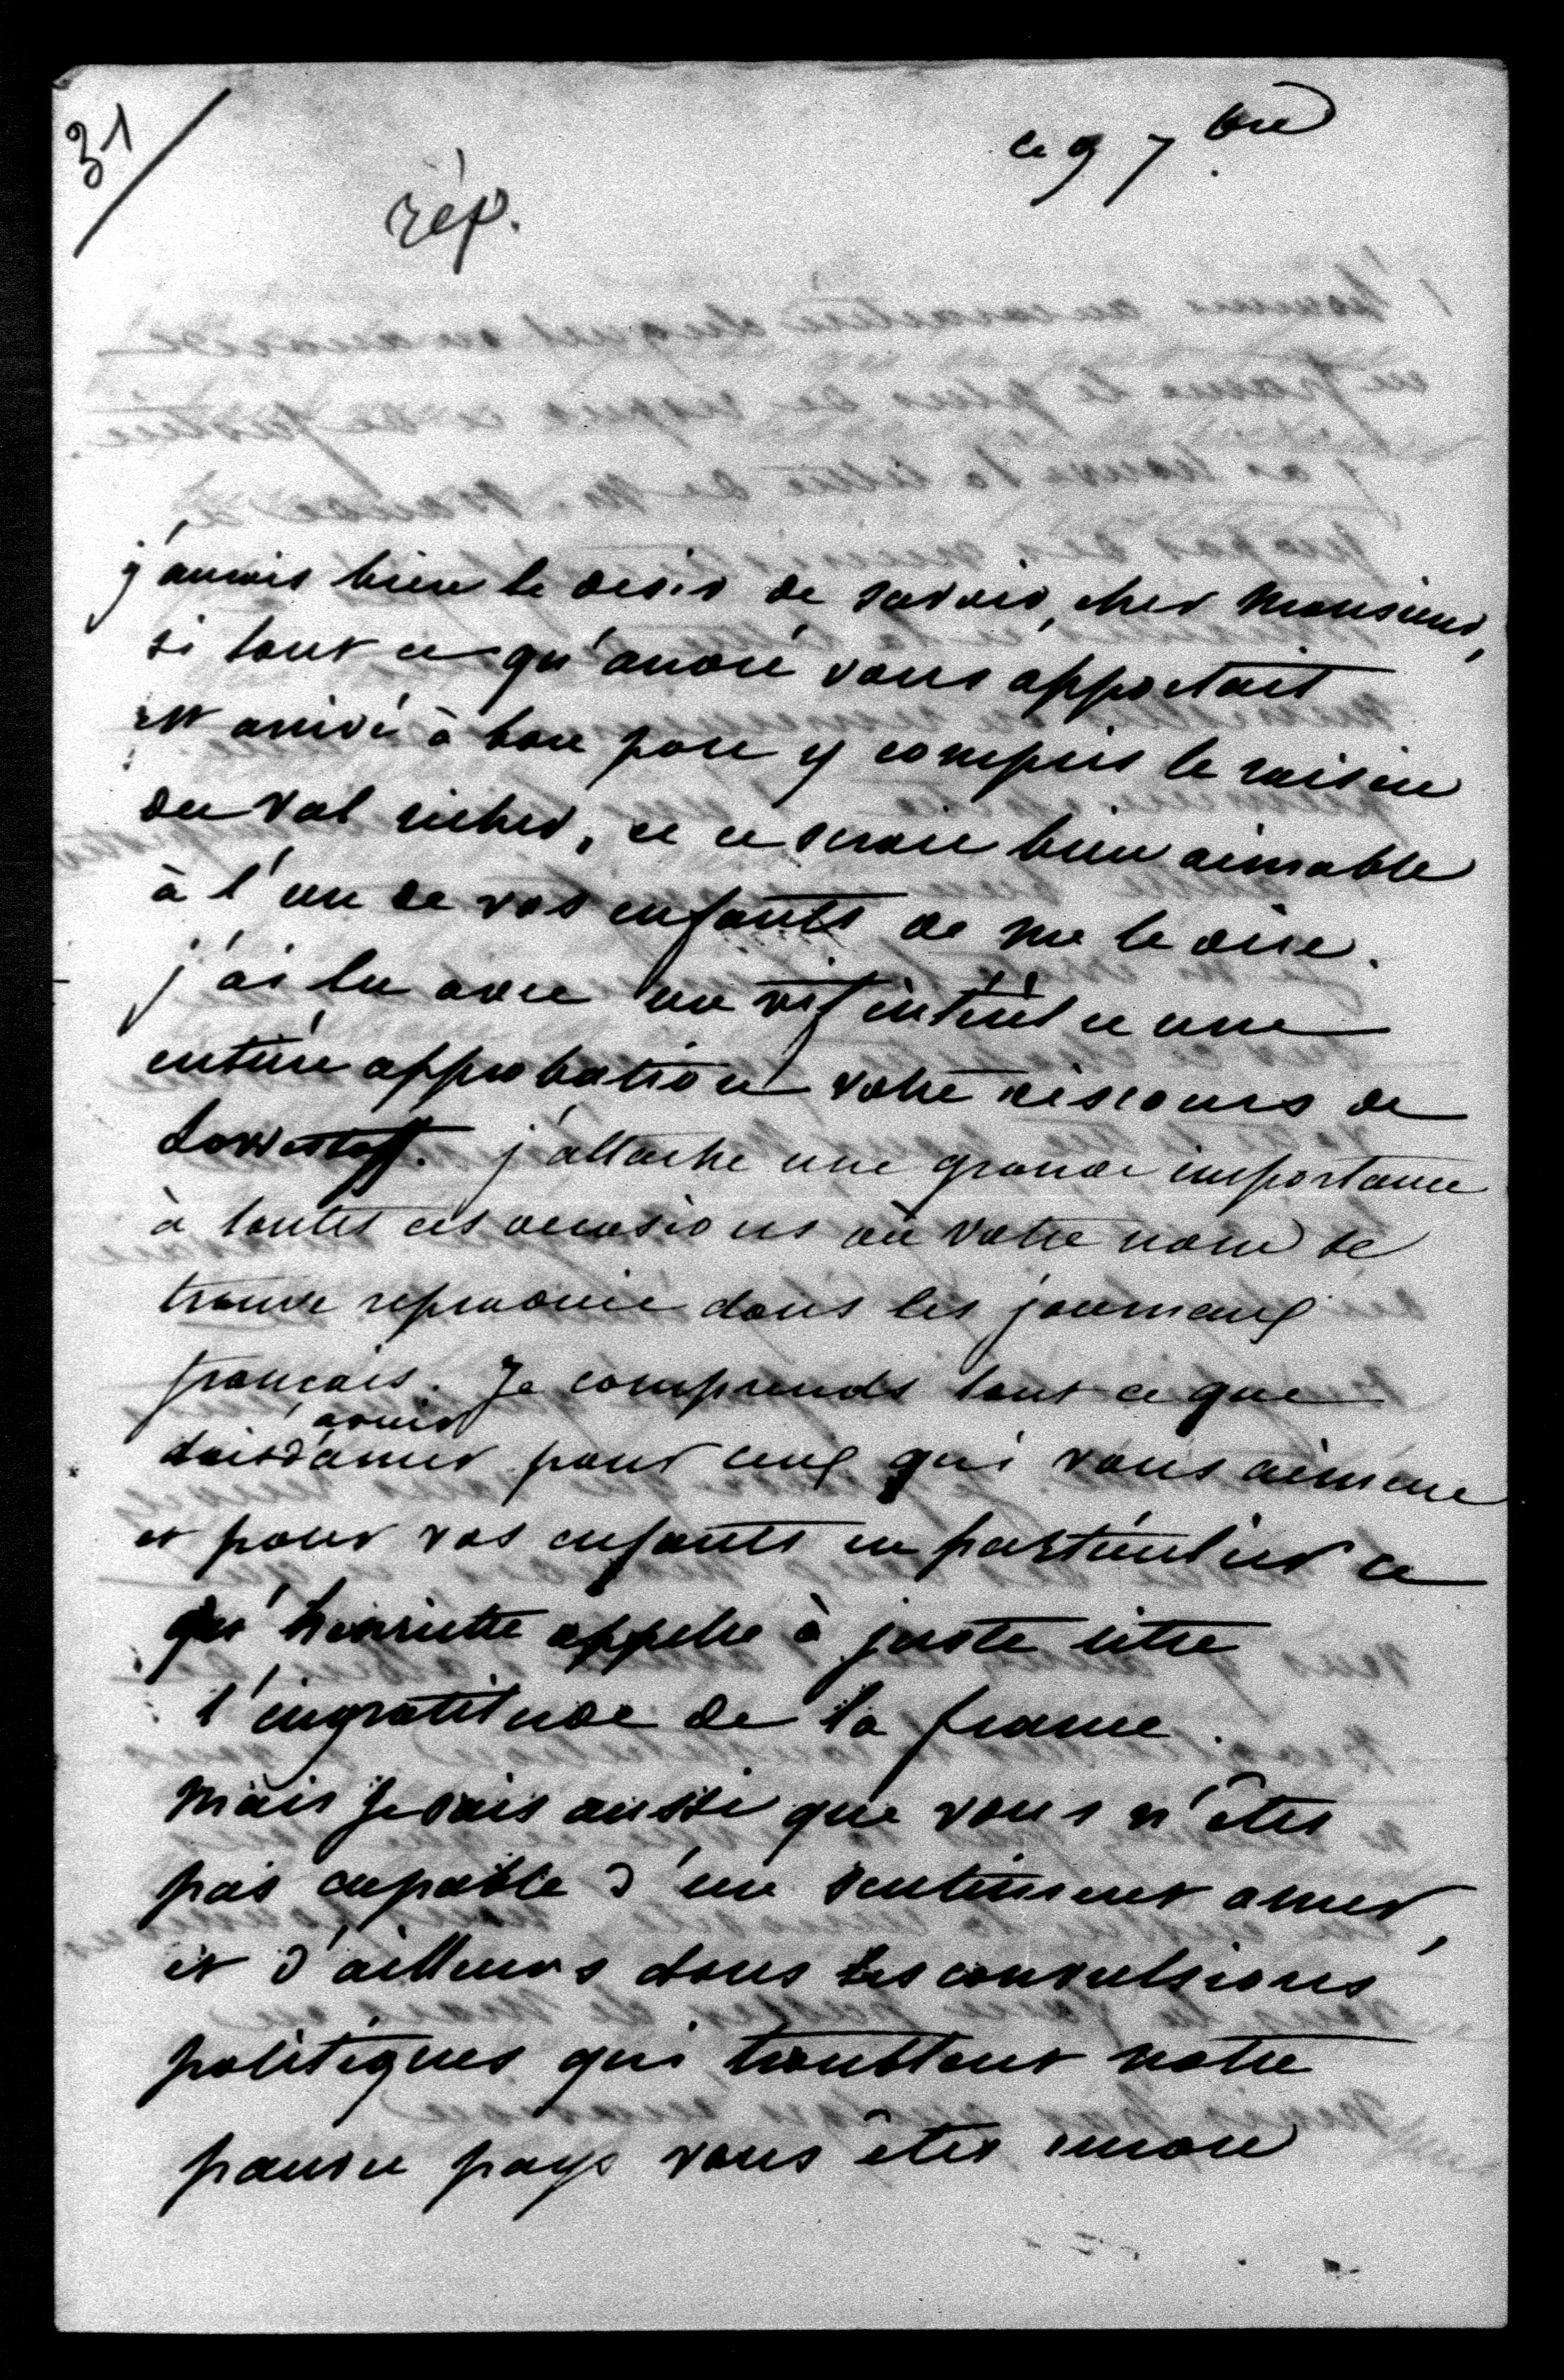 31
ce 9 7bre
rép.
j'aurais bien le désir de savoir, cher Monsieur,
si tout ce qu'andré vous apportait
est arrivé à bon port y compris le raisin
du Val richer, et ce serait bien aimable
à l'un de vos enfants de me le dire.
j'ai lu avec un vif intérêt et une
entière approbation votre discours de
Lowestoft. j'attache une grande importance
à toutes ces occasions où votre nom se
trouve reproduit dans les journaux
français. Je comprends tout ce que
doit avoir d'amer pour ceux qui vous aiment
et pour vos enfants en particulier ce
qu'henriette appelle à juste titre
l'ingratitude de la france.
Mais je sais aussi que vous n'êtes
pas capable d'un sentiment amer,
et d'ailleurs dans les convulsions
politiques qui troublent notre
pauvre pays vous êtes encore